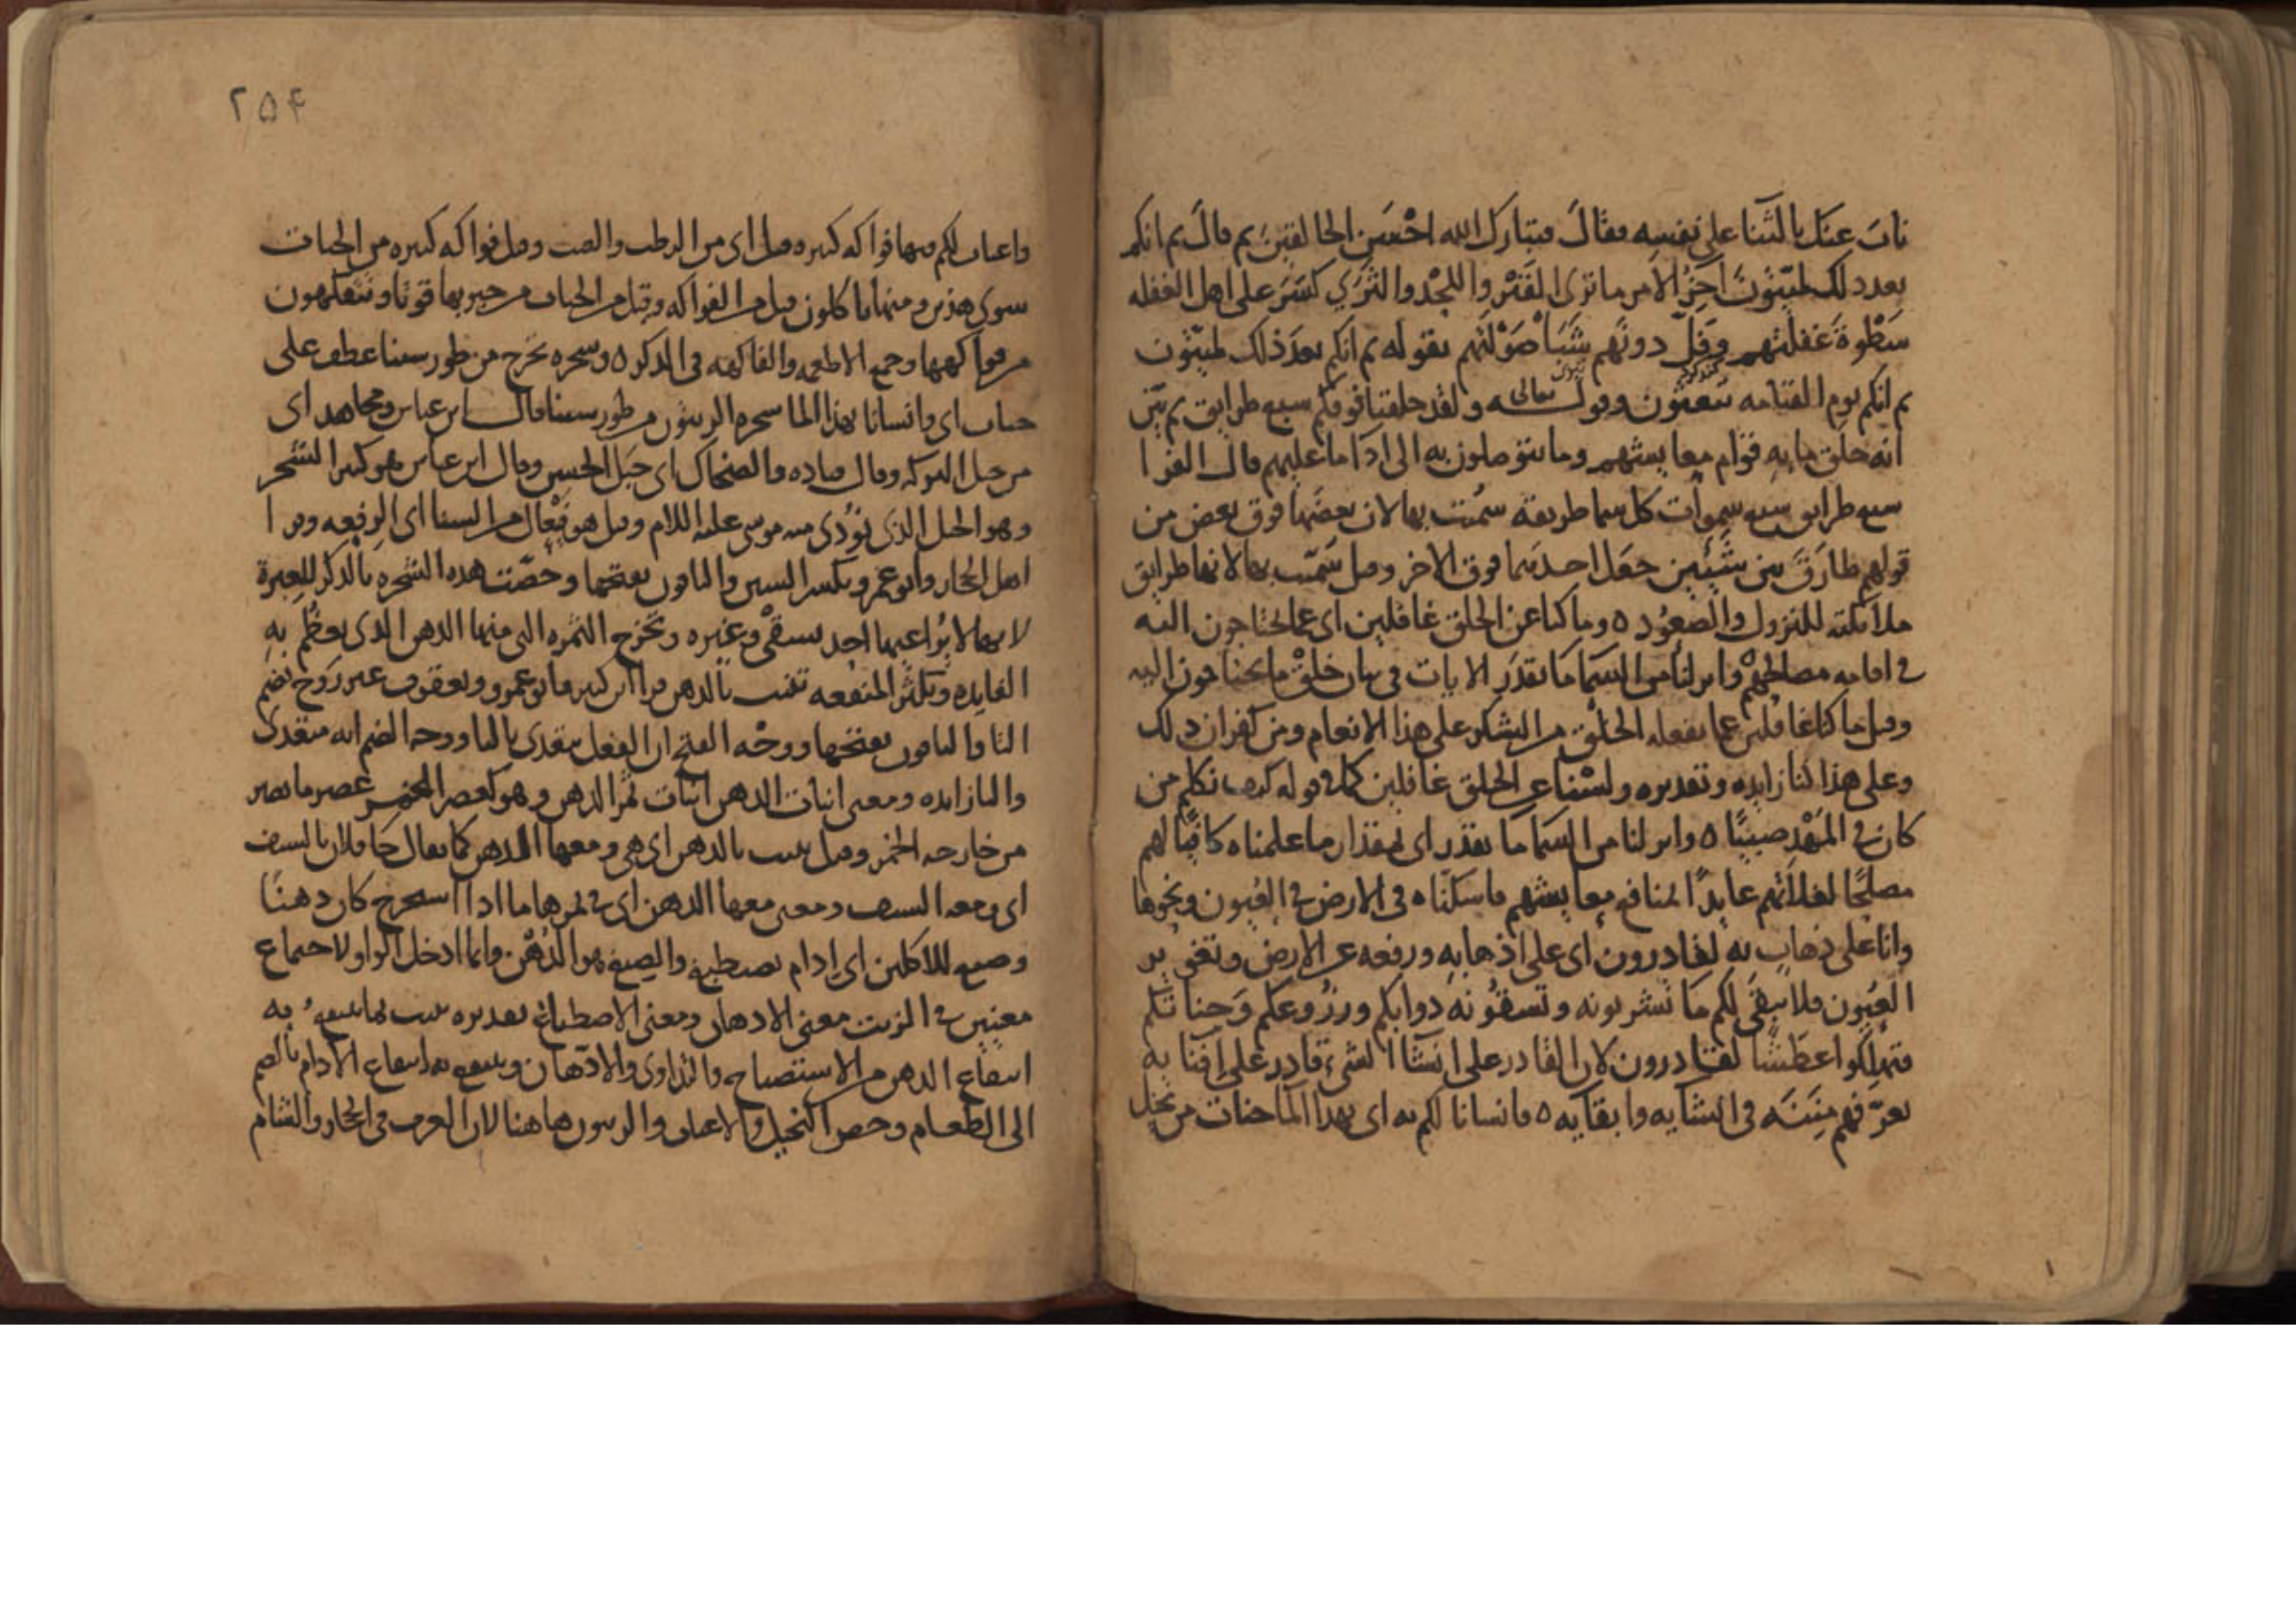 ناب عنك بالثنا على نفسه فقال فتبارك الله احسن الخالقين ثم قال ثم انكم
بعد ذلك لميتون آخر الامر ما ترى القبر واللحد والثرى كسر على اهل الغفله
سطوة غفلتهم وفل دونهم شبا صولتهم بقوله ثم انكم بعد ذلك لميتون
ثم انكم يوم القيامه تبعثون وقوله تعالى ولقد خلقنا فوقكم سبع طرايق ثم بين
انه خلق ما به قوام معايشهم وما يتوصلون به الى ادا ما عليهم قال الفرا
سبع طرايق سبع سموات كل سما طريقه سميت بها لان بعضها فوق بعض من
قولهم طارق بين شيئين جعل احدهما فوق الاخر وقيل سميت بها لانها طرايق
ملائكته للنزول والصعود ٥ وما كنا عن الخلق غافلين اى عما يحتاجون اليه
فى اقامه مصالحهم وانزلنا من السما ما بقدر الايات فى بيان خلق ما يحتاجون اليه
وقيل ما كنا غافلين عما يفعله الخلق من الشكر على هذا الانعام ومن كفران ذلك
وعلى هذا كنا زايده وتقديره ولسنا عن الخلق غافلين كما فى قوله كيف نكلم من
كان فى المهد صبيا ٥ وانزلنا من السما ما بقدر اى بمقدار ما علمناه كافيا لهم
مصلحا لغلاتهم عايدا لمنافع معايشهم فاسكناه فى الارض فى العيون ونحوها
وانا على ذهاب به لقادرون اى على اذهابه ورفعه عن الارض وتغوير
العيون فلا يبقى لكم ما تشربونه وتسقونه دوابكم وزروعكم وجناتكم
فتهلكوا عطشا لقادرون لان القادر على انشا الشىء قادر على افنايه
يعرفهم منته فى انشايه وابقايه ٥ فانشانا لكم به اى بهذا الما جنات من نخيل
٢٥۴
واعناب لكم فيها فواكه كثيره قيل اى من الرطب والعنب وقيل فواكه كثيره من الجنات
سوى هذين ومنها تاكلون قيل من الفواكه وقيل من الجنات من حبوبها قوتا وتتفكهون
من فواكهها وجمع الاطعمه والفاكهه فى الذكر ٥ وشجره تخرج من طور سينا عطف على
جنات اى وانشانا بهذا الما شجره الزيتون من طور سينا قال ابن عباس ومجاهد اى
من جبل البركه وقال قتاده والضحاك اى جبل الحسن وقال ابن عباس هو كثير الشجر
وهو الجبل الذى نودى منه موسى عليه اللام وقيل هو فيعال من السنا اى الرفعه وقرا
اهل الحجاز وابو عمرو بكسر السين والباقون بفتحها وخصت هذه الشجره بالذكر للعبرة
لانها لا يراعيها احد بسقى وغيره وتخرج الثمره التى منها الدهن الذى يعظم به
الفايده وتكثر المنفعه تنبت بالدهن قرا ابن كثير وابو عمرو ويعقوب غير روح بضم
التا والباقون بفتحها ووجه الفتح ان الفعل متعدى بالبا ووجه الضم انه متعدى
والبا زايده ومعنى انبات الدهن انبات ثمر الدهن وهو كعصر الخمر عصر ما تصير
من خارجه الخمر وقيل تنبت بالدهن اى هى ومعها الدهن كما يقال جا فلان بالسيف
اى ومعه السيف ومعنى معها الدهن اى فى ثمرها ما اذا استخرج كان دهنا
وصبغ للاكلين اى ادام يصطبغ والصبغ هو الدهن وانما ادخل الواو لاجتماع
معنيين فى الزيت معنى الادهان ومعنى الاصطباغ تقديره تنبت بما ينتفع به
انتفاع الدهن من الاستصباح والتداوى والادهان وينتفع به انتفاع الادام بالضم
الى الطعام وخص النخيل والاعناب والزيتون هاهنا لان العرب فى الحجاز والشام